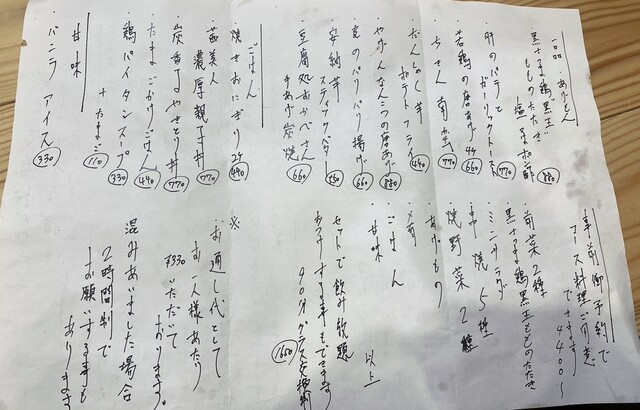 一品 あげもん
黒さつま鶏黒王
もものたたき
塩 or ポン酢 880
肝のパテと
ガーリックトースト 770
若鶏の唐あげ 4ヶ 660
ちきん南蛮 770
だんしゃく芋
ポテトフライ 440
やげんなんこつの唐あげ 880
皮のパリパリ揚げ 660
安納芋
スティックバター 550
豆腐処おかべさん
手あげ炭焼 660
ごはん
焼きおにぎり 2ケ 440
西美人
濃厚親子丼 770
炭香るやきとり丼 770
たまごかけごはん 440
鶏パイタンスープ 330
+たまご 110
甘味
バニラアイス 330
事前御予約で
コース料理ご用意
できます
4400〜
前菜2種
黒さつま鶏黒王もものたたき
ミニサラダ
串焼5種
焼野菜2種
あげもの
〆前
ごはん
甘味
以上
セットで飲み放題
おつけする事もできます
90分グラス交換制
1650
※
お通し代として
お一人様あたり
¥330いただいて
おります。
混みあいました場合
2時間制で
お願いする事も
あります